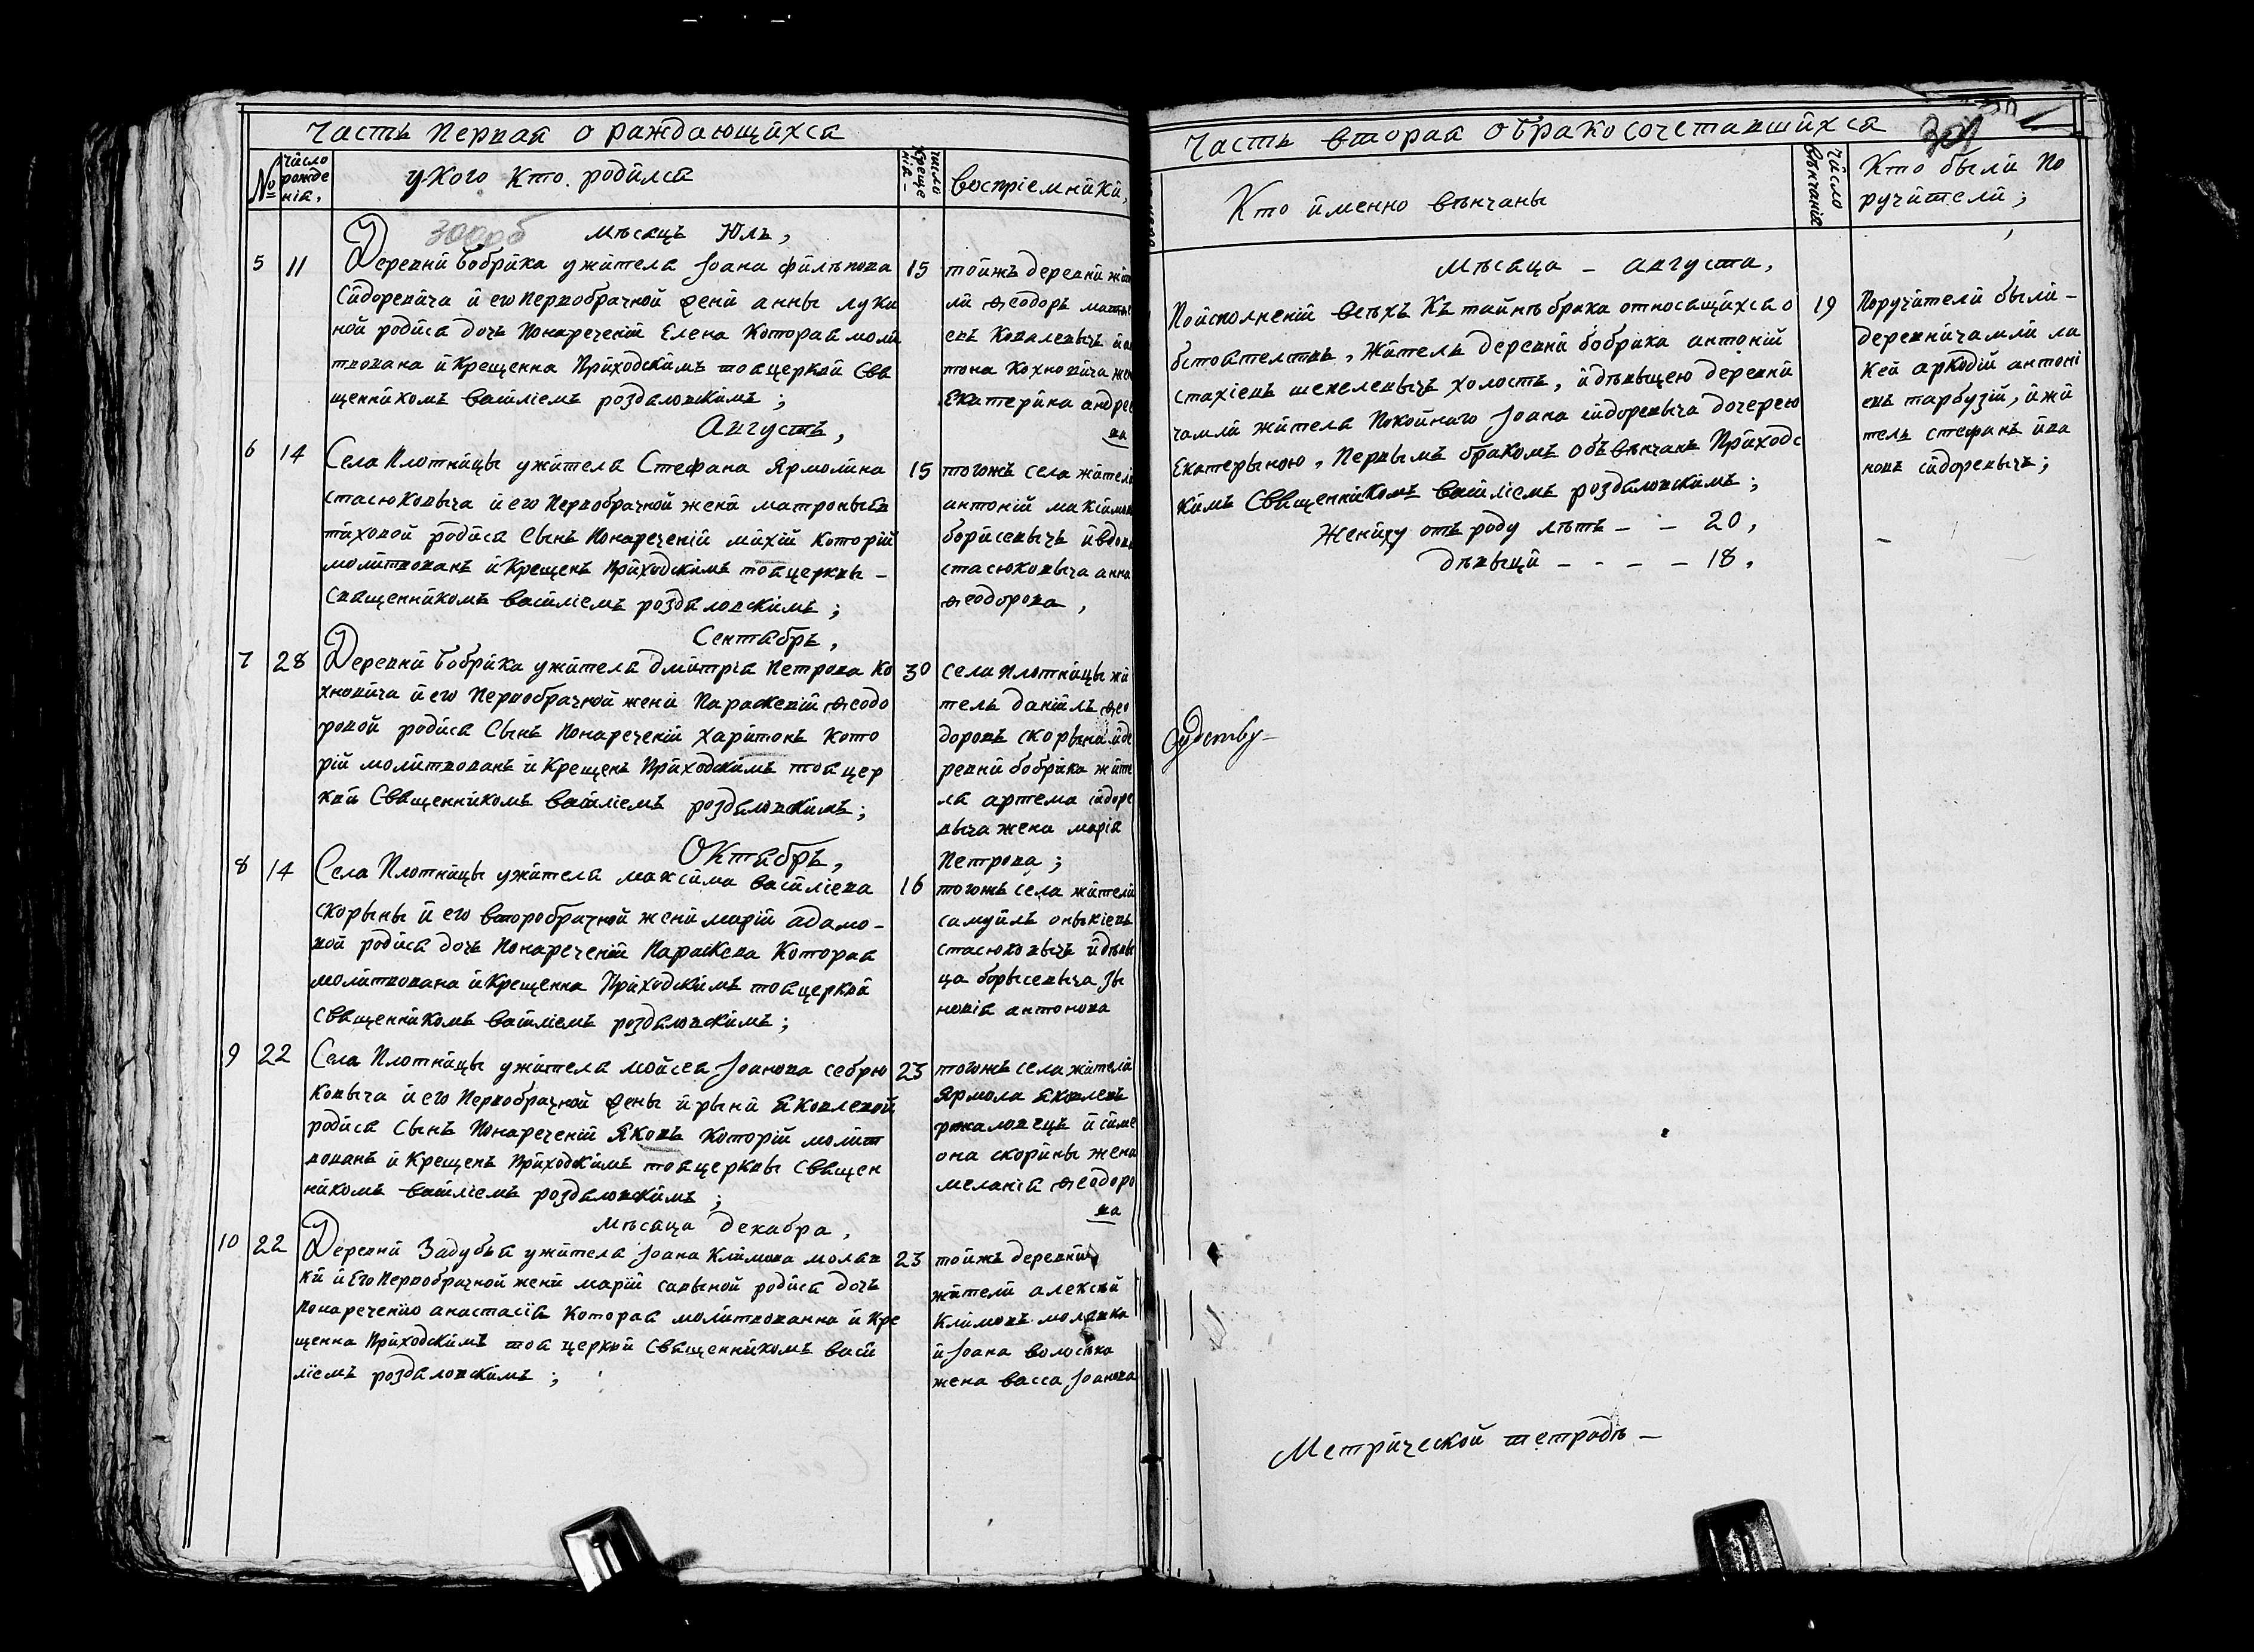 Часть первая о раждающихся
№
число рожде нія.
у Кого Кто родился
число Креще нія –
воспріемники,
300об
Мѣсяцъ Юль,
5 11
Деревни Бобрика ужителя Іоана филъпова
Сидоревича и его Первобрачной жени анны луки
ной родися дочъ Понареченій Елена Которая моли
твована и Крещенна Приходскимъ тоя церкви Свя
щенникомъ Василіемъ роздяловскимъ;
15
тойжъ деревни жите
ли Ѳеодоръ матве
евъ Ковалевычъ и ан
тона Кохновича жен
Екатерина андрее
ва
Августъ,
6 14
Села Плотницы ужителя Стефана Ярмолина
стасюКовыча и его Первобрачной жени матроны
тиховой родися Сынъ Понареченій михій Которій
молитвованъ и Крещенъ Приходскимъ тоя церквы –
Священникомъ Василіемъ роздяловскимъ;
15
тогожъ села жители
антоній
борисевычъ и вдова
стасюковыча анна
Ѳеодорова,
Сентябръ,
7 28
Деревни Бобрика ужителя дмитрія Петрова Ко
хновича и его Первобрачной жени Параскевій Ѳеодо
ровой родися Сынъ Понареченій Харитонъ Кото
рій молитвованъ и Крещенъ Приходскимъ тоя цер
кви Священникомъ Василіемъ роздяловскимъ;
30
села Плотницы жи
тель даніилъ Ѳео
доровъ скорына и де
ревни бобрика жите
ля артема сидоре
выча жена марія
Петрова;
Октябръ,
8 14
Села Плотницы ужителя максима Василіева
скорыны и его второбрачной жени марій адамо–
вой родися дочъ Понареченій Параскева Которая
молитвована и Крещенна Приходскимъ тоя церкви
Священникомъ Василіемъ роздяловскимъ;
16
тогожъ села жители
самуилъ
стасюковычъ и дѣвы
ца борысевыча зы
новія антонова
9 22
Села Плотницы ужителя мойсея Іоанова себрю
Ковыча и его Первобрачной жены ирыни яковлевой
родися Сынъ Понареченій Яковъ Которій молит
вованъ и Крещенъ Приходскимъ тоя церквы Священ
никомъ Василіемъ роздяловскимъ;
23
тогожъ села жители
Ярмола яковлевъ
и симе
она скорины жена
меланія Ѳеодоро
ва
Мѣсяца декабра,
10 22
Деревни Задубья ужителя Іоана Климова моляв
ки и Его Первобрачной жени марій савыной родися дочъ
Понареченію анастасія Которая молитвованна и Кре
щенна Приходскимъ тоя церкви Священникомъ Васи
ліемъ роздяловскимъ;
23
тойжъ деревни
жители алексѣй
Климовъ молявка
и Іоана
жена васса Іоанова
Часть вторая обракосочетавшихся
301
Кто именно вѣнчаны
число вѣнчанія
Кто были По
ручители;
Мѣсяца – августа,
Поисполненій всѣхъ Къ тайнѣ брака относящихся о
бстоятелствъ, житель деревни бобрика антоній
стахіевъ шепелевычъ холостъ, и дѣвыцею деревни
чамли жителя Покойнаго Іоана сидоревыча дочерею
Екатерыною, Первымъ бракомъ обѣвѣнчанъ Приходс
кимъ Священникомъ Василіемъ роздяловскимъ;
Жениху отъ роду лѣтъ – – 20,
дѣвыци – – – – 18.
19
Поручители были –
деревни чамли ла
кей аркадій антоні
евъ тарбузій, ижи
тель стефанъ ива
новъ сидоревычъ;
Метрической тетрадъ –